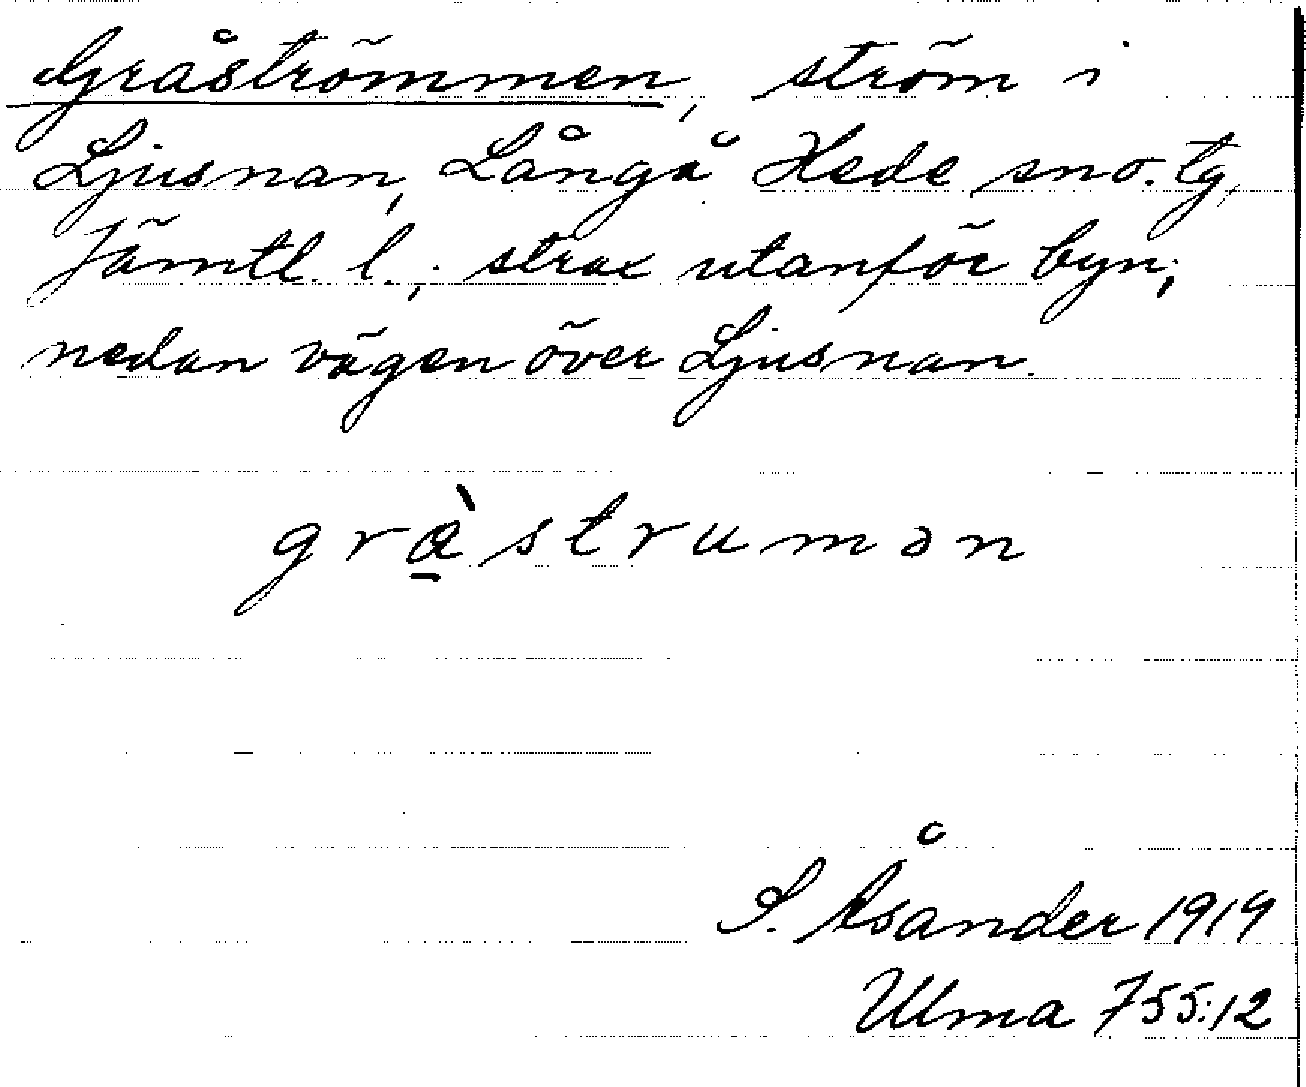 Gråströmmen, ström i
Ljusnan, Långå Hede sn o. tg,
Jämtl. l.; strax utanför byn;
nedan vägen över Ljusnan.
grà̠strumən
S. Åsander 1919
Ulma 755:12